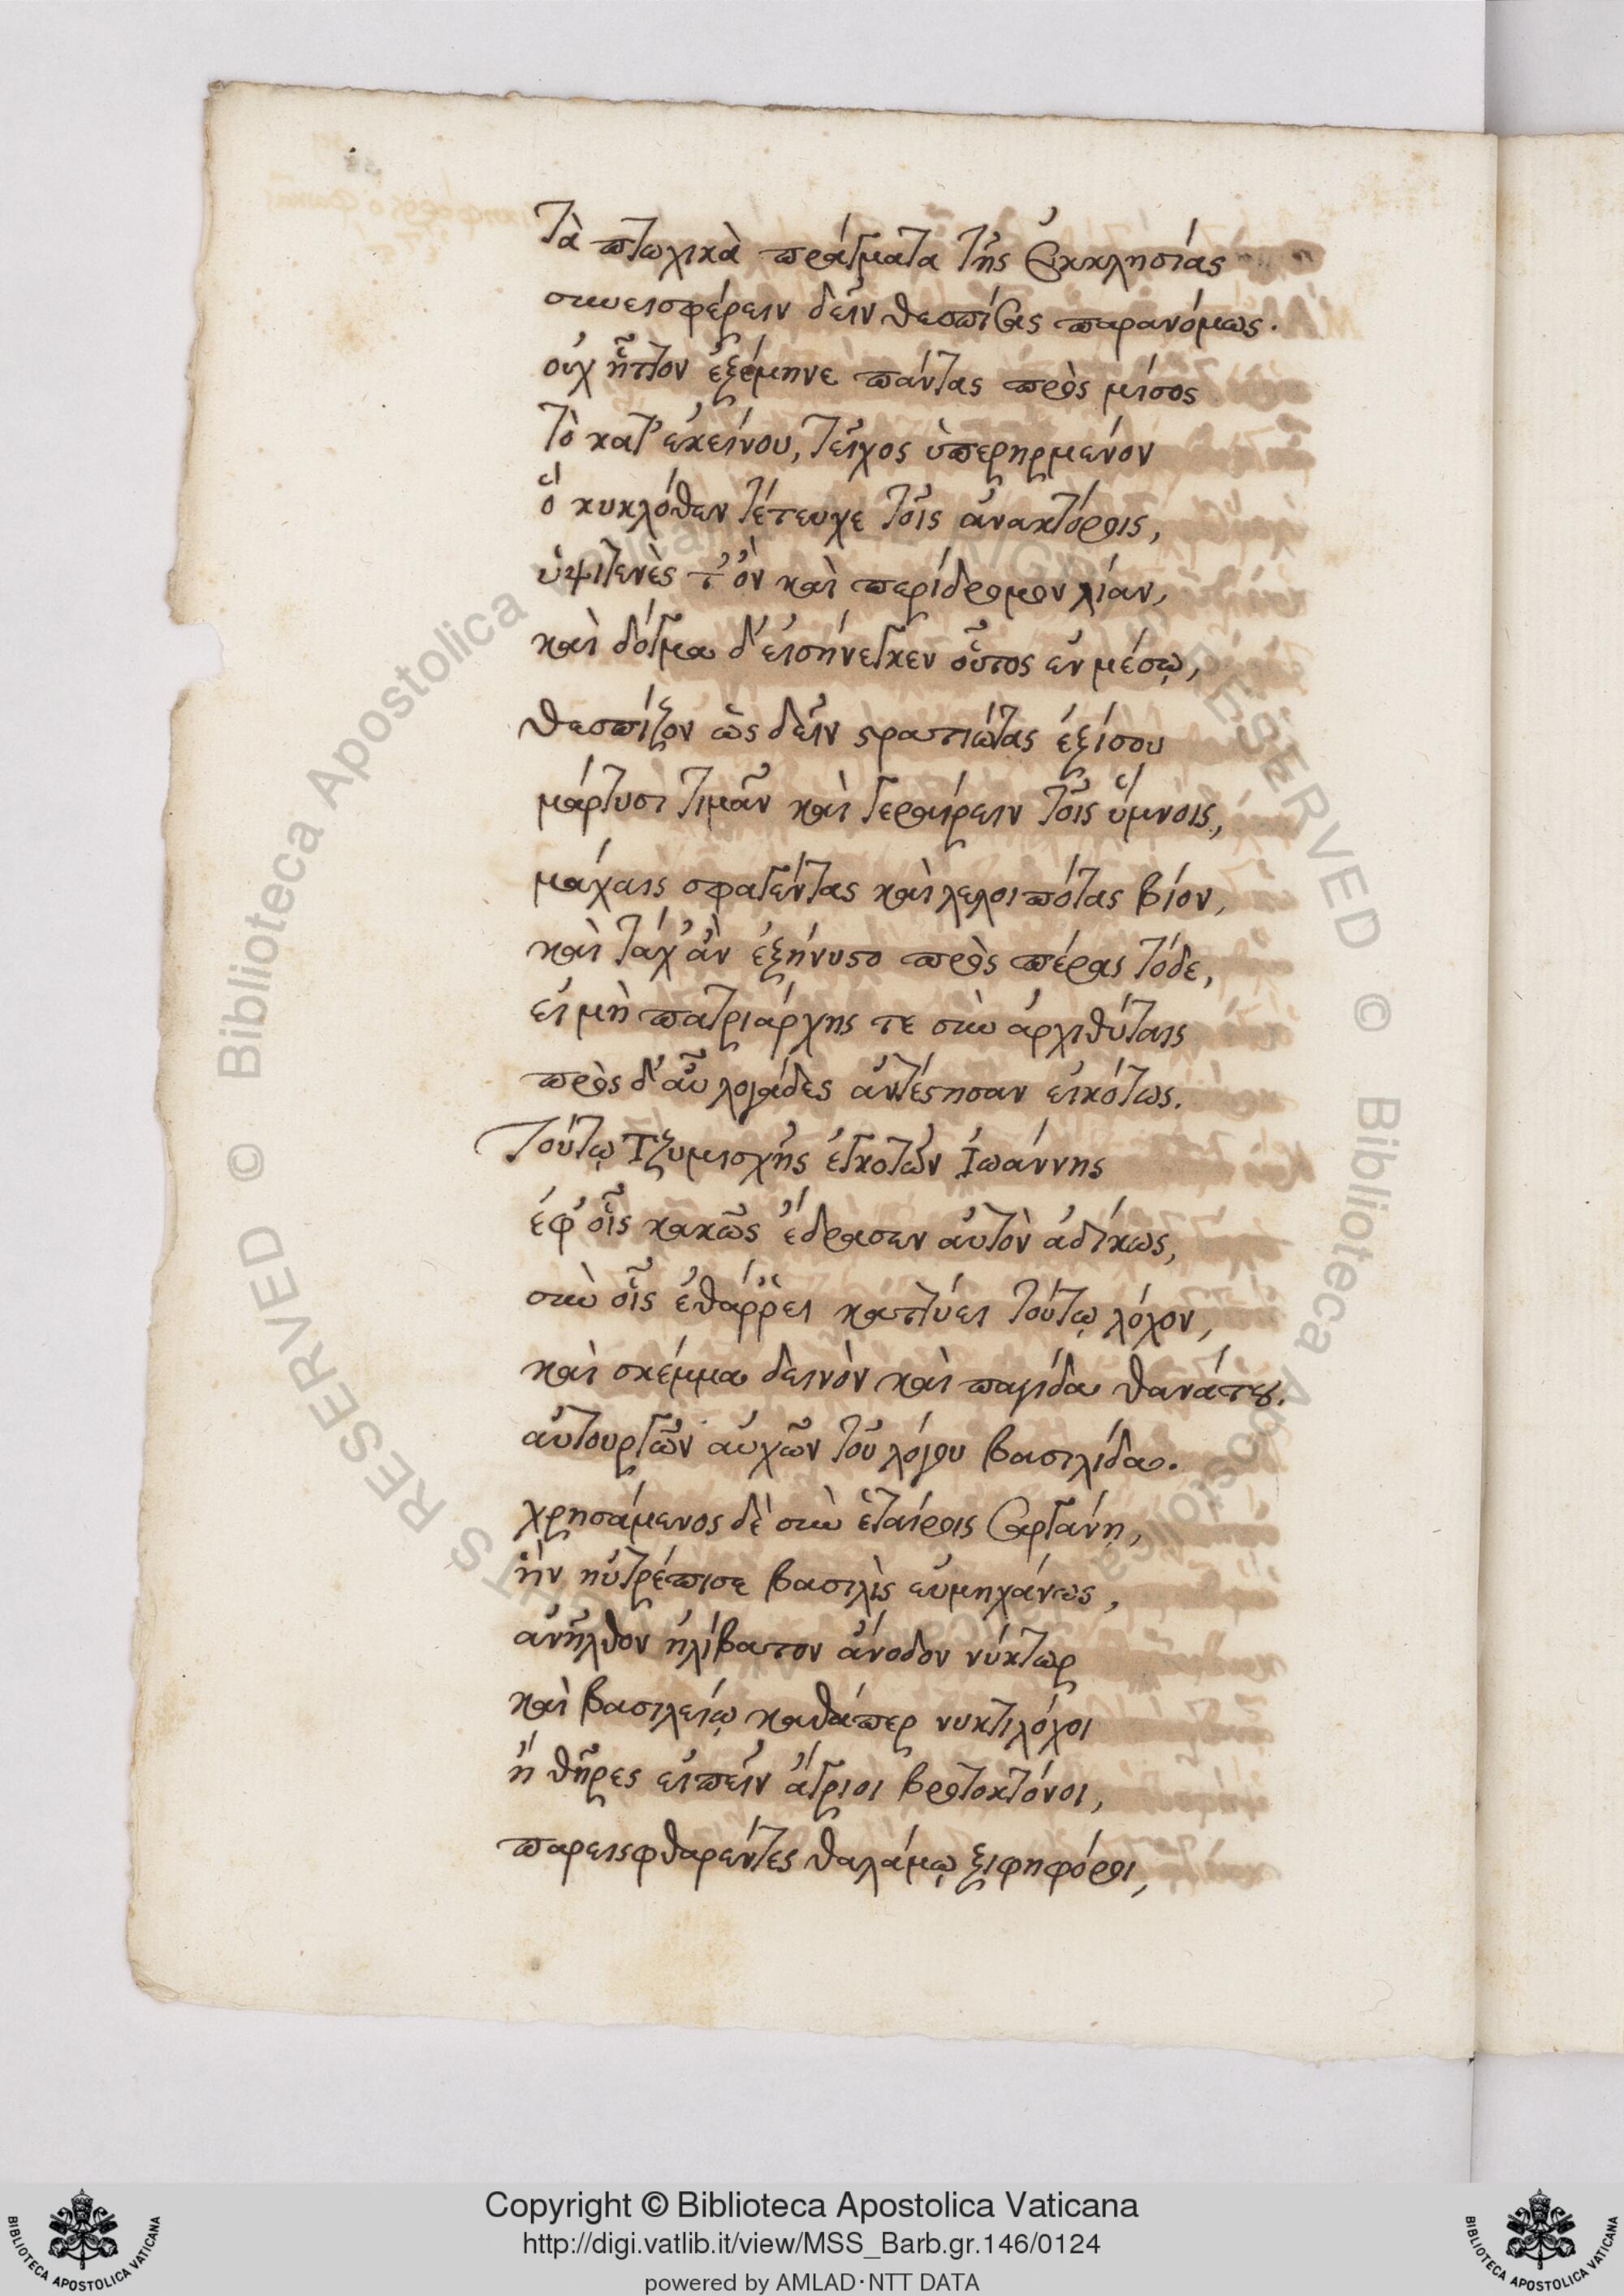 Τὰ πτωχικὰ πράγματα τῆς ἐκκλησίας
συνεισφέρειν δεῖν θεσπίσας παρανόμως.
οὐχ ἧττον ἐξέμηνε πάντας πρὸς μίσος
τὸ κατ' ἐκείνου, τεῖχος ὑπερηρμένον
ὃ κυκλόθεν τέτευχε τοῖς ἀνακτόροις,
ὑψιτενὲς τ' ὂν καὶ περίδρομον λίαν,
καὶ δόγμα δ' εἰσήνεγκεν οὗτος ἐν μέσῳ,
θεσπίζον ὡς δεῖν στρατιώτας ἐξίσου
μάρτυσι τιμᾶν καὶ γεραίρειν τοῖς ὕμνοις,
μάχαις σφαγέντας καὶ λελοιπότας βίον,
καὶ τάχ' ἂν ἐξήνυστο πρὸς πέρας τόδε,
εἰ μὴ πατριάρχης τε σὺν ἀρχιθύταις
πρὸς δ' αὖ λογάδες ἀντέστησαν εἰκότως.
Τούτῳ Τζυμισχῆς ἐγκοτῶν Ἰωάννης
ἐφ' οἷς κακῶς ἔδρασεν αὐτὸν ἀδίκως,
σὺν οἷς ἐθάῤῥει καττύει τούτῳ λόχον,
καὶ σκέμμα δεινὸν καὶ παγίδα θανάτου.
αὐτουργῶν αὐχῶν τοῦ λόγου βασιλίδα.
χρησάμενος δὲ σὺν ἑταίροις σαργάνῃ,
ἣν ηὐτρέπισε βασιλὶς εὐμηχάνως,
ἀνῆλθον ἠλίβατον ἄνοδον νύκτωρ
καὶ βασιλείῳ καθάπερ νυκτιλόχοι
ἢ θῆρες εἰπεῖν ἄγριοι βροτοκτόνοι,
παρεισφθαρέντες θαλάμῳ ξιφηφόροι,
Copyright © Biblioteca Apostolica Vaticana
http://digi.vatlib.it/view/MSS_Barb.gr.146/0124
powered by AMLAD·NTT DATA